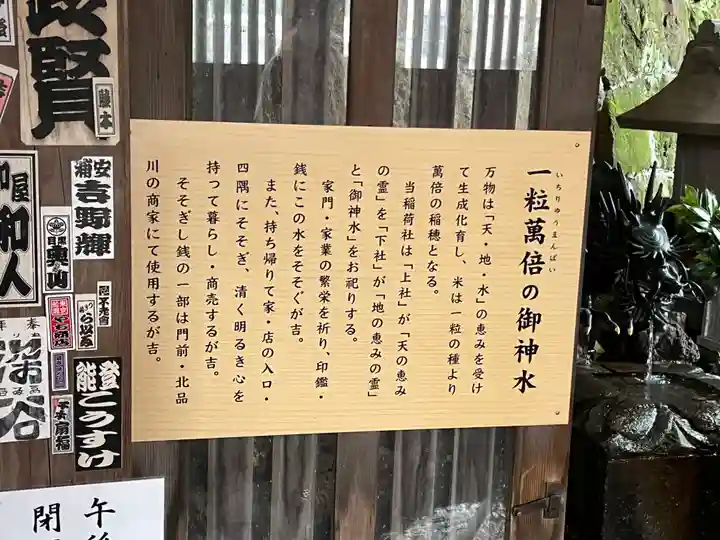 一粒萬倍の御神水
いちりゅうまんばい
万物は「天・地・水」の恵みを受け
て生成化育し、米は一粒の種より
萬倍の稲穂となる。
当稲荷社は「上社」が「天の恵み
の霊」を「下社」が「地の恵みの霊」
と「御神水」をお祀りする。
家門・家業の繁栄を祈り、印鑑・
銭にこの水をそそぐが吉。
また、持ち帰りて家・店の入口・
四隅にそそぎ、清く明るき心を
持って暮らし・商売するが吉。
そそぎし銭の一部は門前・北品
川の商家にて使用するが吉。
藤本
浦安
吉野輝
和人
能登
こうすけ
午後
閉